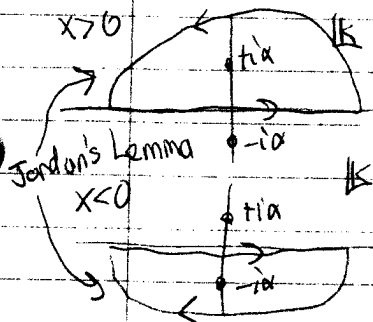 x>0
𝕂
+iα
-iα
Jordan's Lemma
x<0
𝕂
+iα
-iα